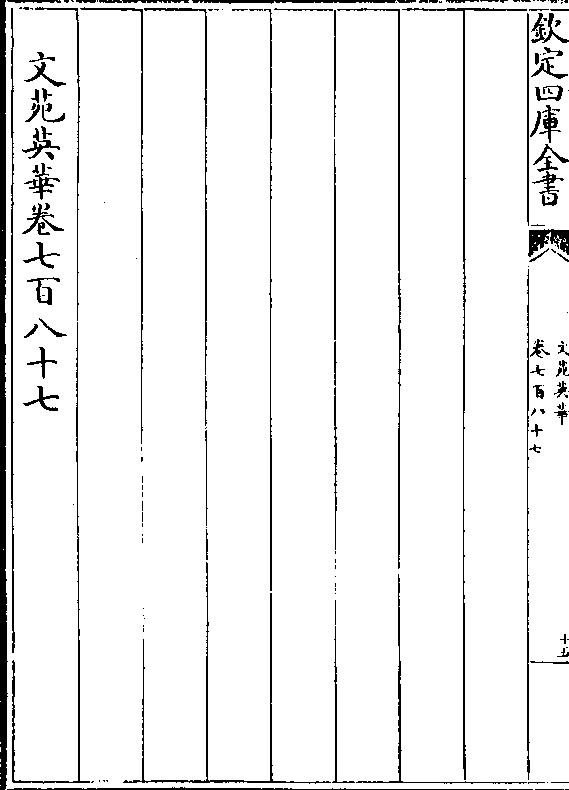 欽定四庫全書
文苑英華
卷七百八十七
十五
文苑英華卷七百八十七